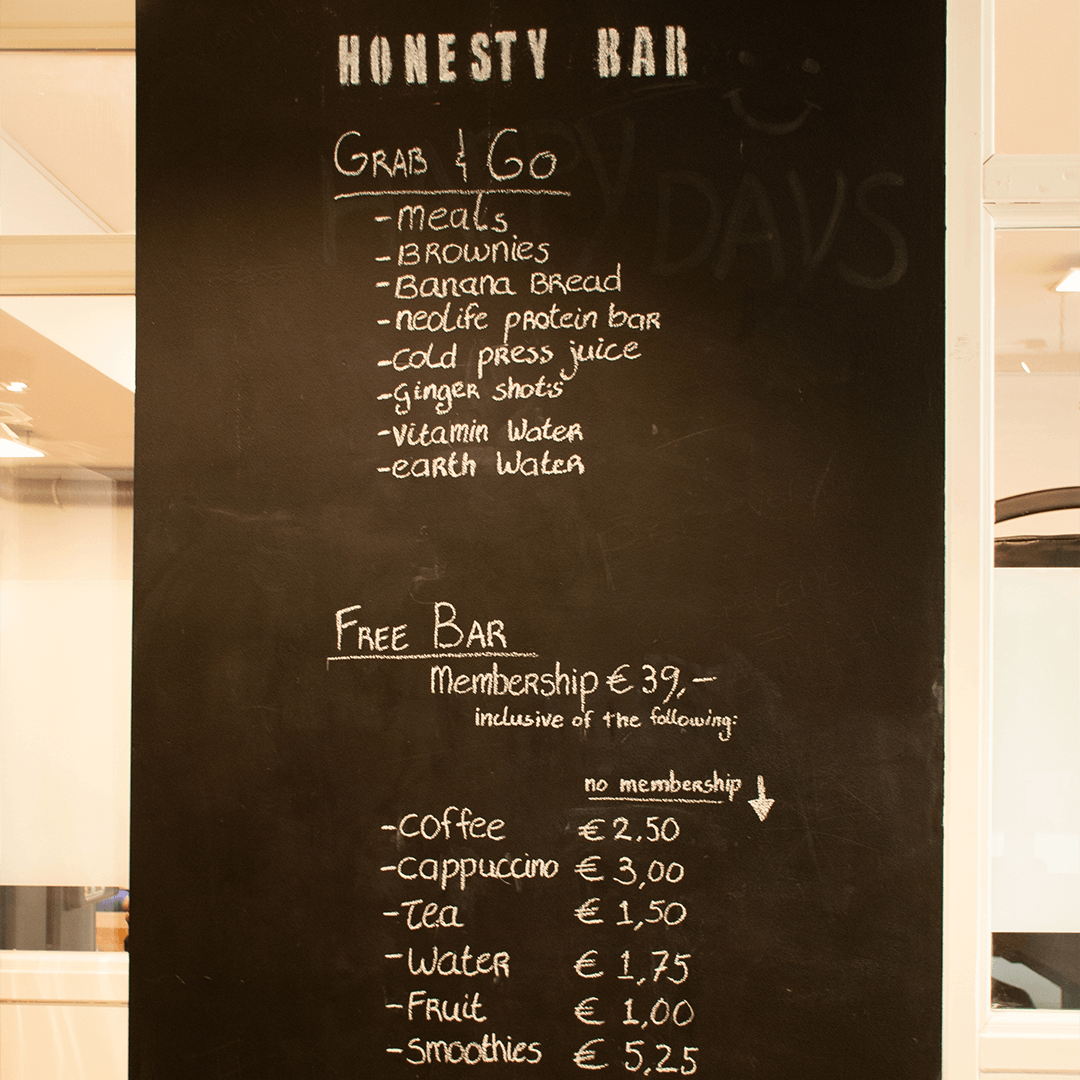 HONESTY BAR
HAPPY DAYS
GRAB & GO
-meals
-BROWNIES
-Banana BRead
-neoLife pRotein baR
-coLd pRess juice
-GingeR shots
-vitamin WateR
-eaRth WateR
FREE BAR
MembeRship € 39,-
inclusive of the following:
no membeRship ↓
-coffee € 2.50
-cappuccino € 3,00
-Tea € 1,50
-WateR € 1,75
-FRuit € 1,00
-Smoothies € 5,25